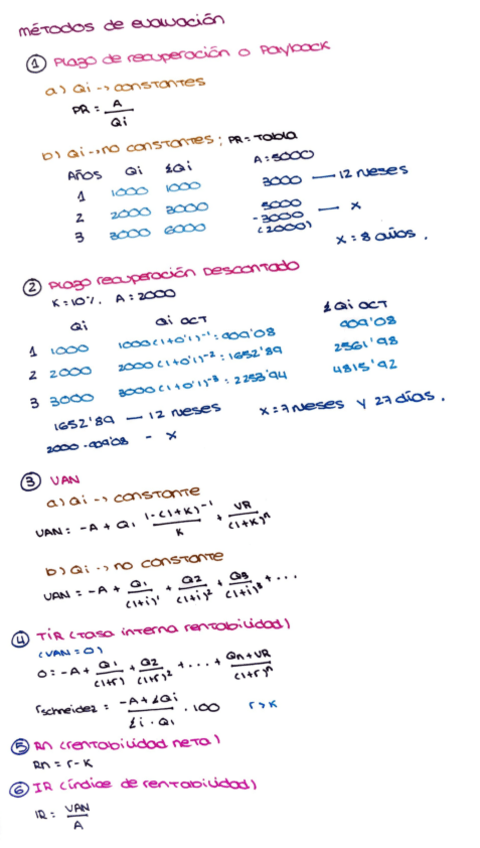 métodos de evaluación
① Plazo de recuperación o Payback
a) Qi → constantes
PR = A / Qi
b) Qi → no constantes ; PR = Tabla
Años Qi ΣQi A = 5000
1 1000 1000 3000 — 12 meses
2 2000 3000 5000 - 3000 (2000) — x
3 3000 6000 x = 8 años.
② Plazo recuperación Descontado
K = 10%. A = 2000
Qi Qi ACT ΣQi ACT
1 1000 1000(1+0'1)⁻¹ = 909'08 909'08
2 2000 2000(1+0'1)⁻² = 1652'89 2561'98
3 3000 3000(1+0'1)⁻³ = 2253'94 4815'92
1652'89 — 12 meses x = 7 meses y 27 días.
2000 - 909'08 - x
③ VAN
a) Qi → constante
VAN = -A + Q1 (1-(1+K)⁻¹ / K) + VR / (1+K)ⁿ
b) Qi → no constante
VAN = -A + Q1 / (1+i)¹ + Q2 / (1+i)² + Q3 / (1+i)³ + ...
④ TIR (tasa interna rentabilidad)
(VAN = 0)
0 = -A + Q1 / (1+r) + Q2 / (1+r)² + ... + Qn+VR / (1+r)ⁿ
rschneider = -A+ΣQi / Σi · Qi · 100 r > K
⑤ Rn (rentabilidad neta)
Rn = r - K
⑥ IR (índice de rentabilidad)
IR = VAN / A